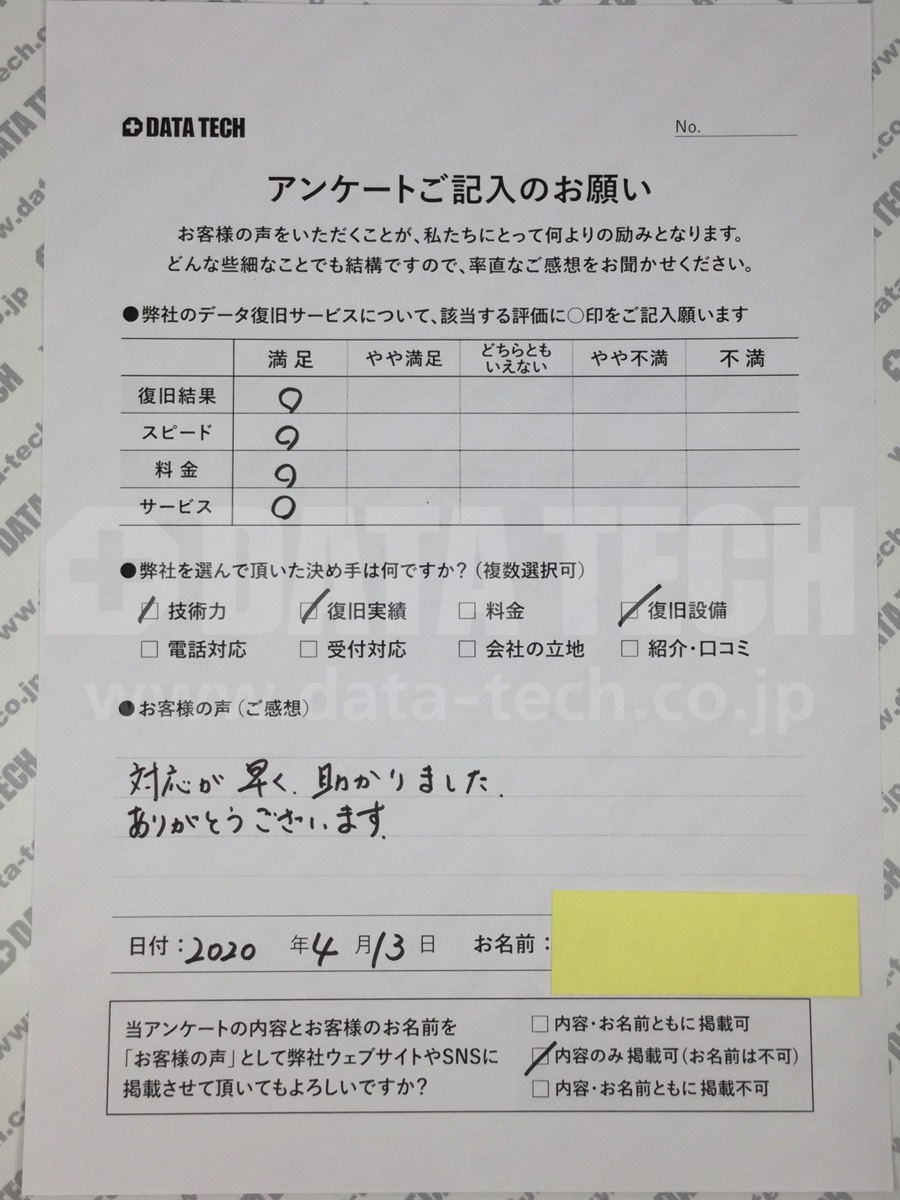 DATA TECH
No.
アンケートご記入のお願い
お客様の声をいただくことが、私たちにとって何よりの励みとなります。
どんな些細なことでも結構ですので、率直なご感想をお聞かせください。
●弊社のデータ復旧サービスについて、該当する評価に○印をご記入願います
満足 やや満足 どちらとも いえない やや不満 不満
復旧結果 ○
スピード ○
料金 ○
サービス ○
DATA TECH
●弊社を選んで頂いた決め手は何ですか？（複数選択可）
☑ 技術力 ☑ 復旧実績 □ 料金 ☑ 復旧設備
□ 電話対応 □ 受付対応 □ 会社の立地 □ 紹介・口コミ
www.data-tech.co.jp
●お客様の声（ご感想）
対応が早く、助かりました。
ありがとうございます。
日付：2020 年 4 月 13 日 お名前：
当アンケートの内容とお客様のお名前を
「お客様の声」として弊社ウェブサイトやSNSに
掲載させて頂いてもよろしいですか？
□ 内容・お名前ともに掲載可
☑ 内容のみ掲載可（お名前は不可）
□ 内容・お名前ともに掲載不可